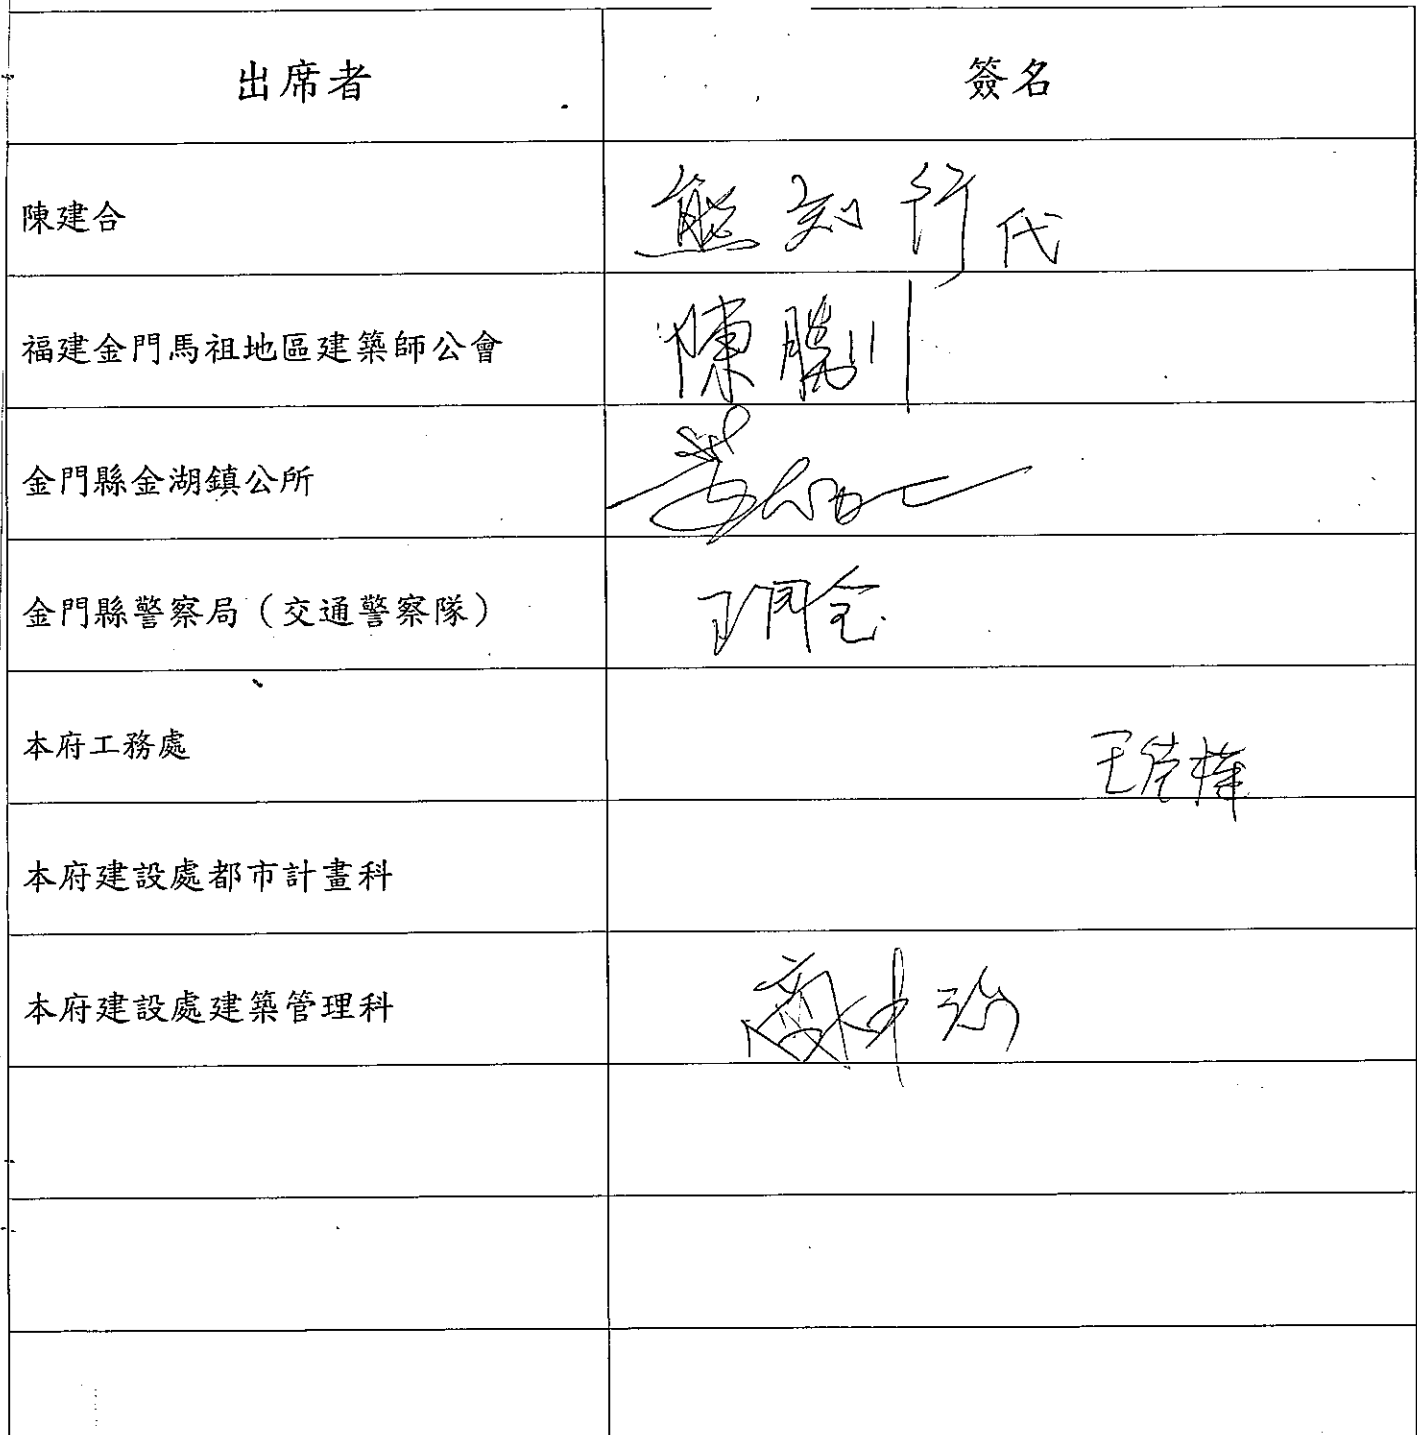 出席者 簽名
陳建合 熊知行代
福建金門馬祖地區建築師公會 陳勝川
金門縣金湖鎮公所
金門縣警察局（交通警察隊）
本府工務處 王
本府建設處都市計畫科
本府建設處建築管理科